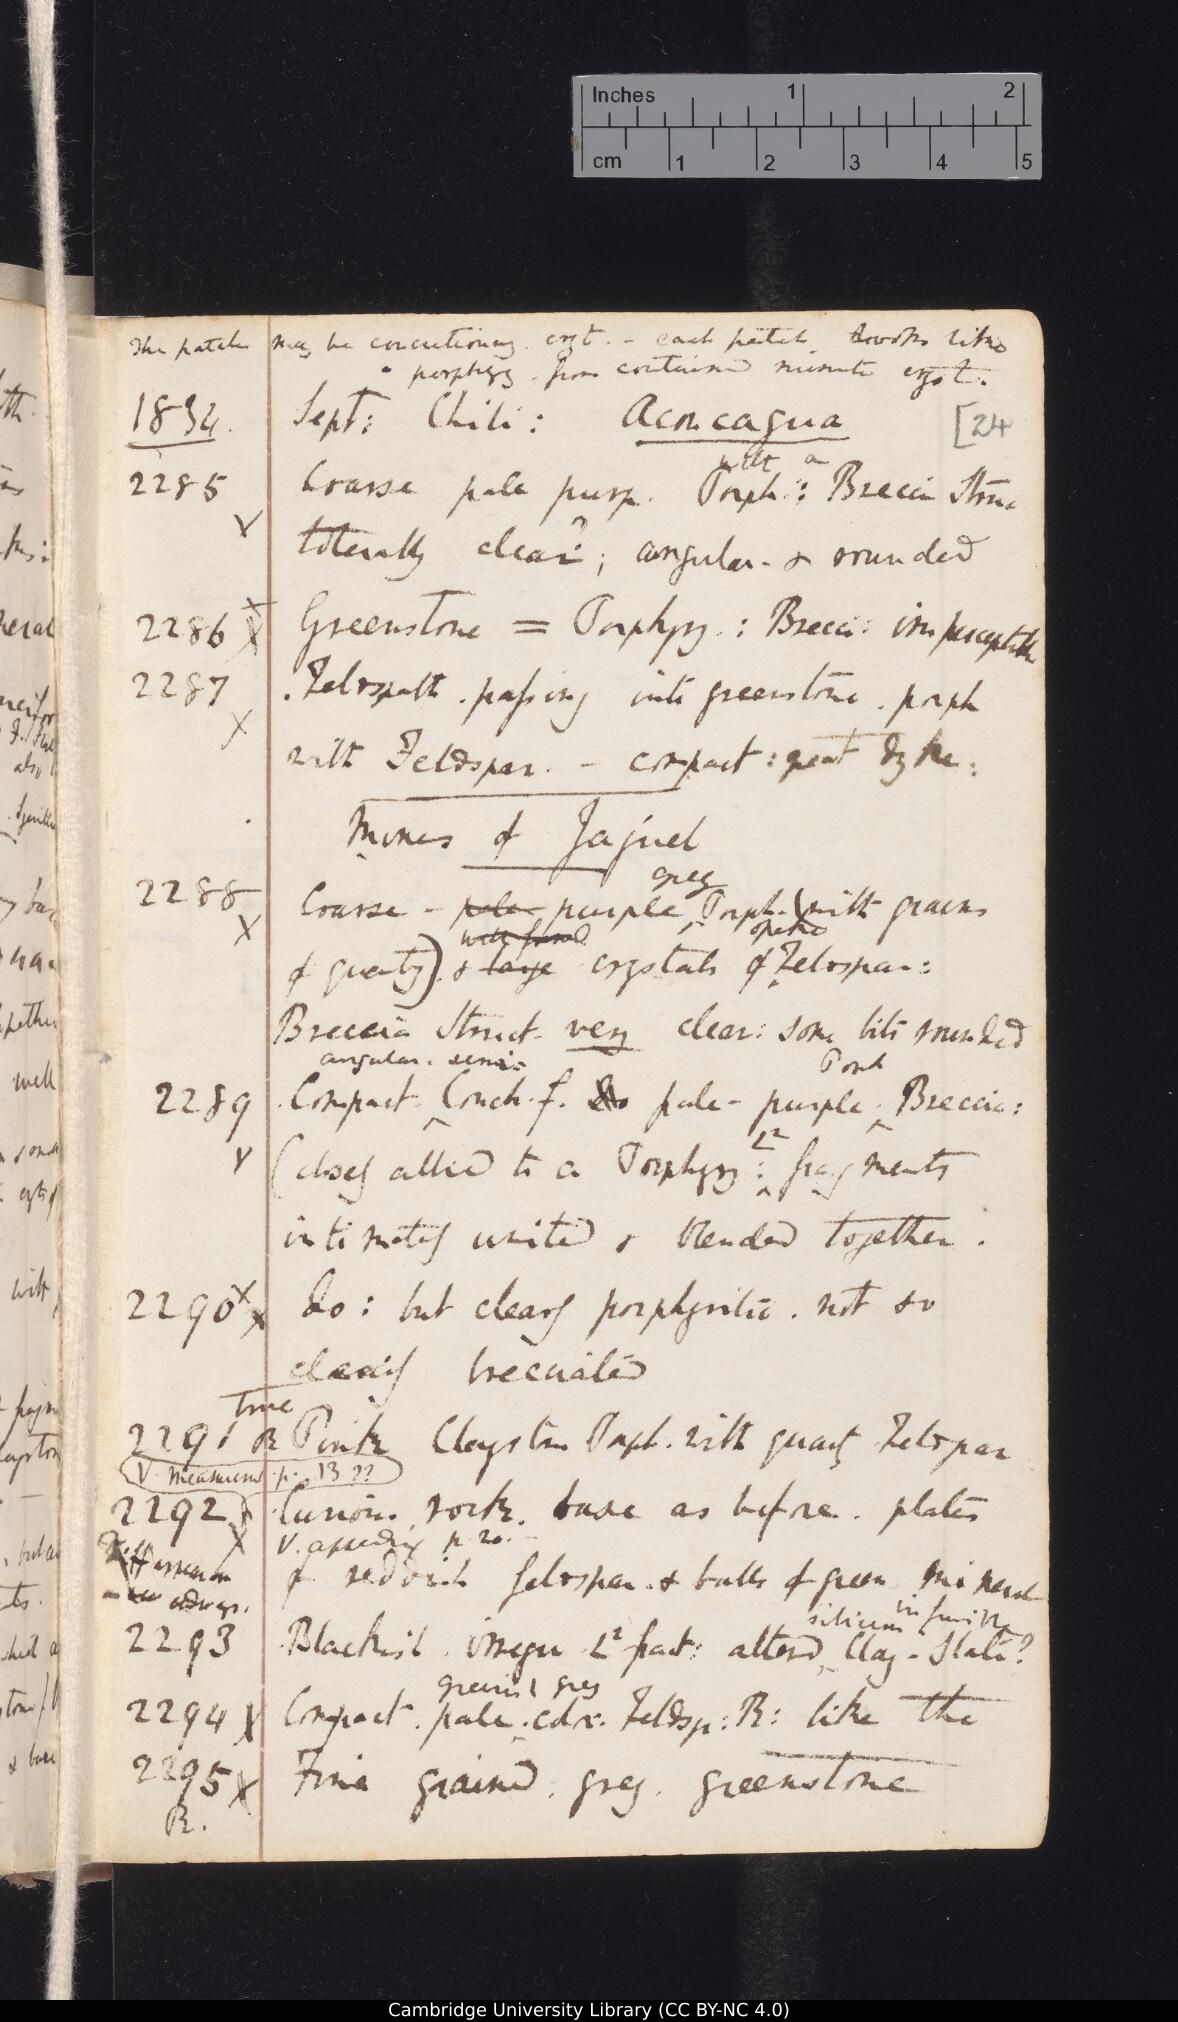 Inches 1 2
cm 1 2 3 4 5
The patch may be concretionary cryst. - each patch looks like
a porphyry from contained minute cryst.
1834. Sept: Chili: Aconcagua [24
with a
2285 Coarse pale purp. Porph: Breccia Struc
literally clear?; angular & rounded
2286 X Greenstone = Porphyry: Brecci: imperceptible
2287 Feldspath. passing into greenstone. porph
X with Feldspar. - compact: great dyke:
Mines of Jajuel
grey
2288 Coarse - pale purple Porph. (with grains
X opake
of quartz) & large crystals of Feldspar:
Breccia Struct. very clear: some bits rounded
angular. semi- Porph
2289 Compact Conch. f. pale - purple Breccia:
(closely allied to a Porphyry: fragments
intimately united & blended together.
2290 X X Do: but clearly porphyritic. not so
clearly brecciated
True
2291 R Pink Claystone Porph. with quartz Feldspar
V measurement p. 13 ??
2292 Curious rock. base as before. plates
V. appendix p 20.
of reddish feldspar & balls of green mineral
silicious infusible
2293 Blackish irregu fract: altered Clay-Slate?
greenish grey
2294 X Compact. pale. Feldsp: R: like the
2295 X Fine grained. grey. greenstone
R.
Cambridge University Library (CC BY-NC 4.0)